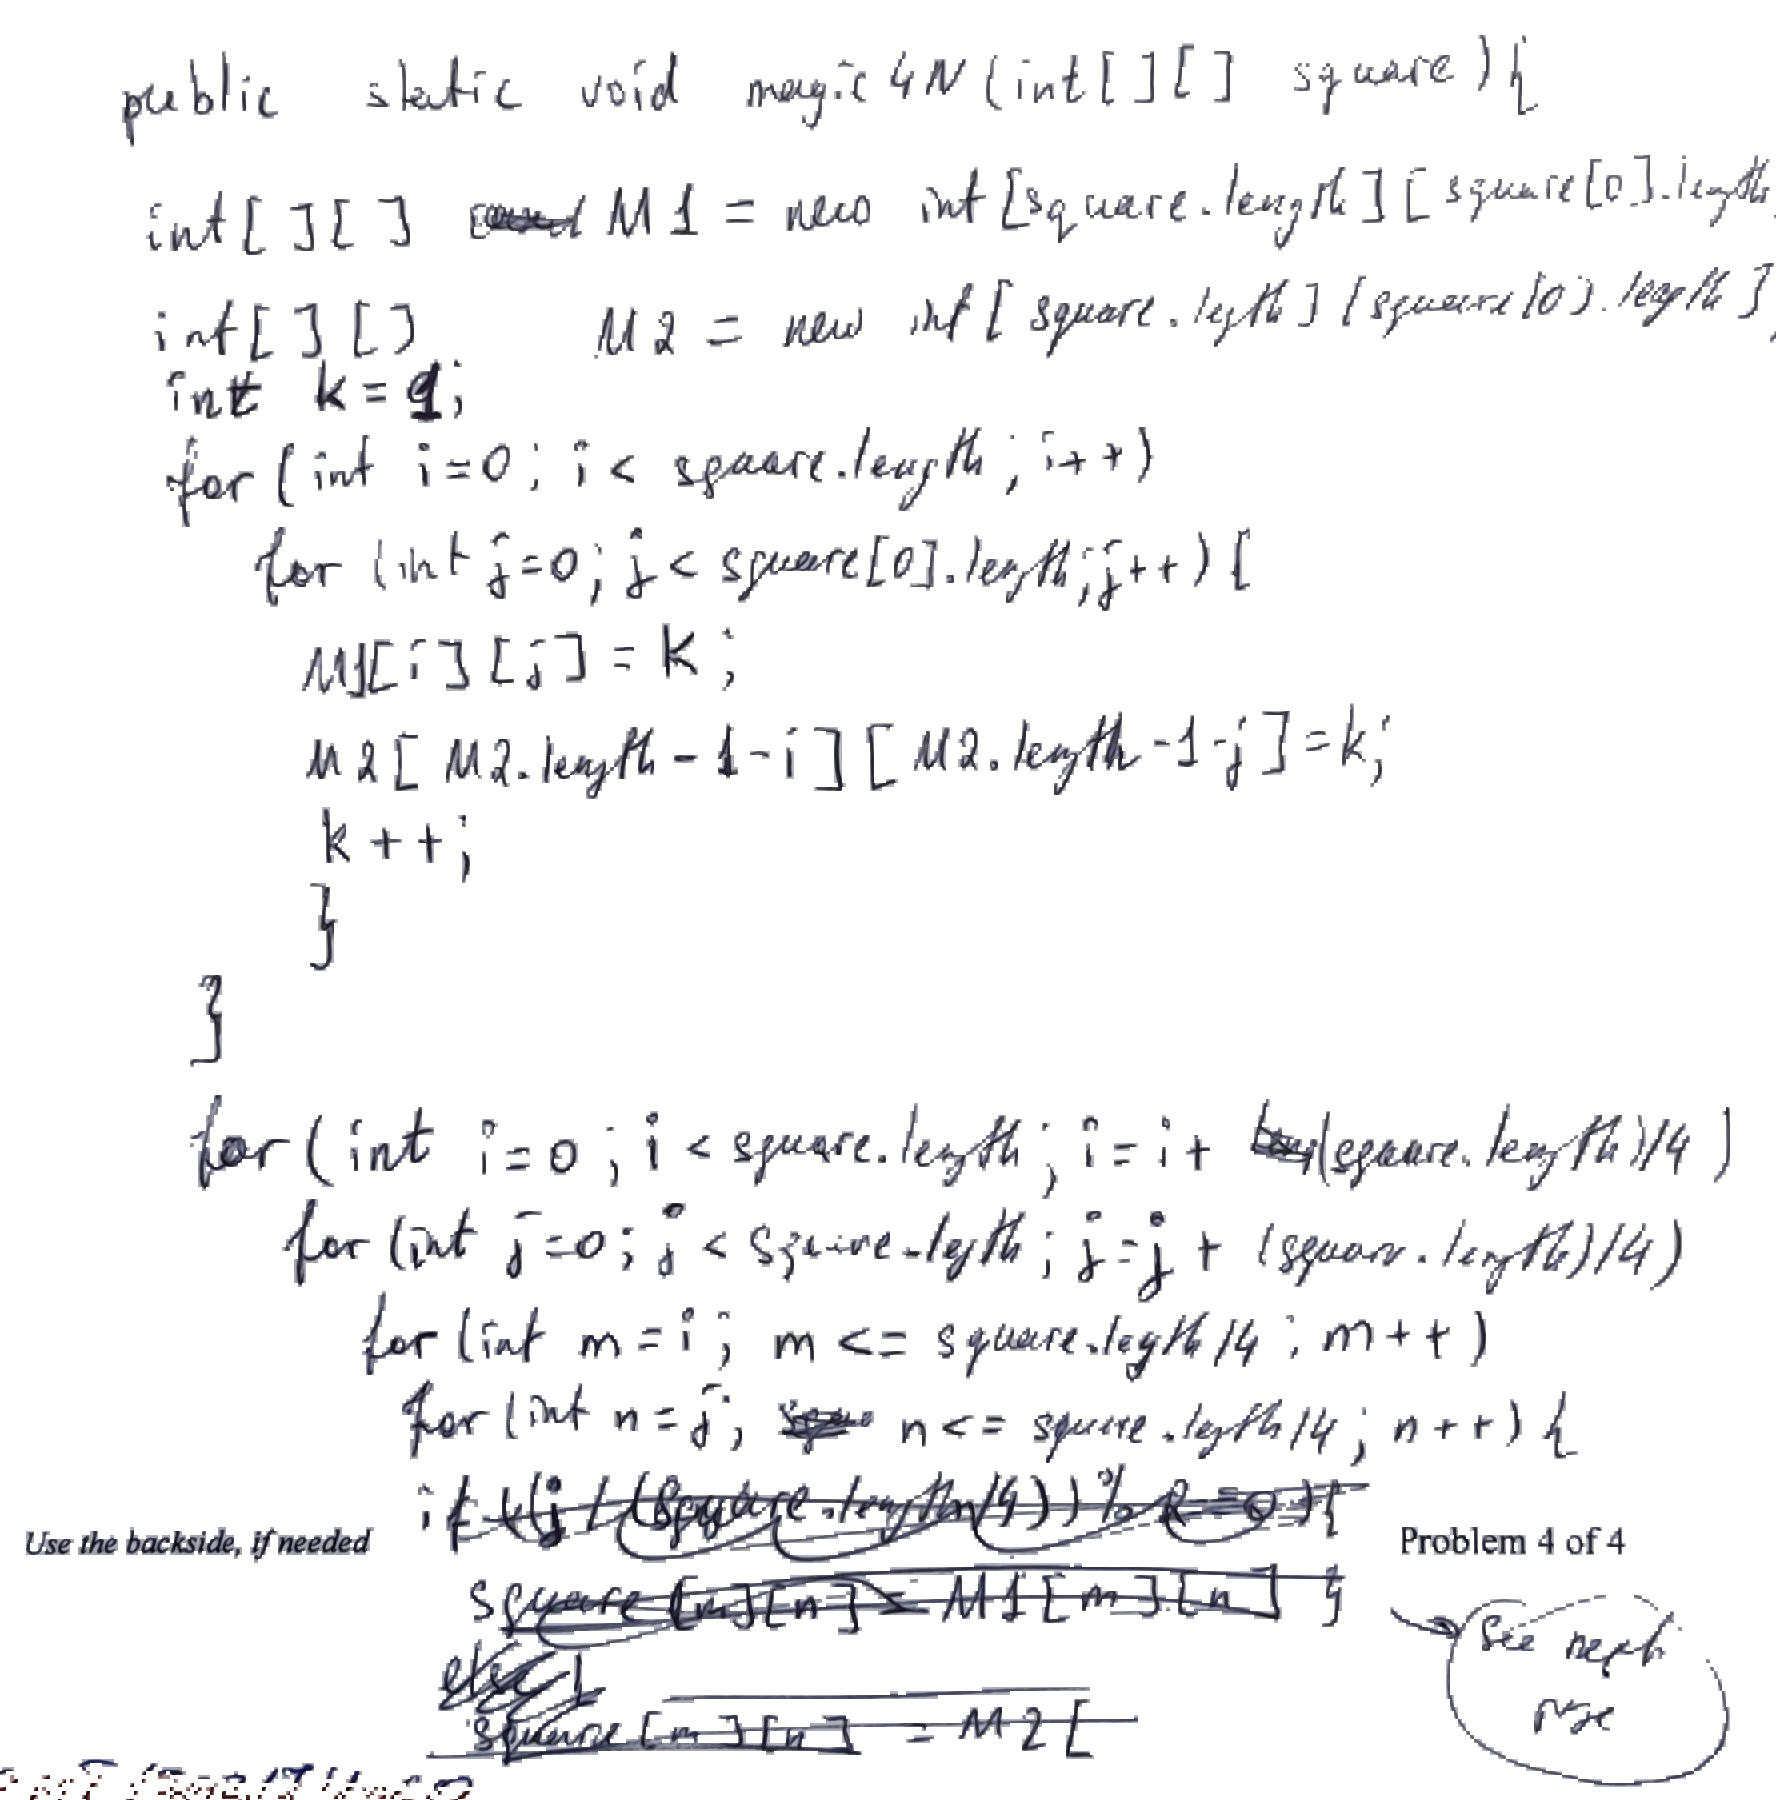 public static void magic4N(int[][] square){
int[][] M1 = new int[square.length][square[0].length
int[][] M2 = new int[square.legth][square[0].length]
int k=1;
for(int i=0; i< square.length; i++)
for(int j=0; j< square[0].length; j++){
M1[i][j]=k;
M2[M2.length-1-i][M2.length-1-j]=k;
k++;
}
}
for(int i=0; i<square.length; i=i+ (square.length)/4)
for(int j=0; j< square.legth; j=j+ (square.length)/4)
for(int m=i; m<= square.legth/4; m++)
for(int n=j; n<= square.legth/4; n++){
if ((j/(square.length/4))%2==0){
Use the backside, if needed
Problem 4 of 4
square[m][n]=M1[m][n] }
else {
square[m][n] = M2[
See next